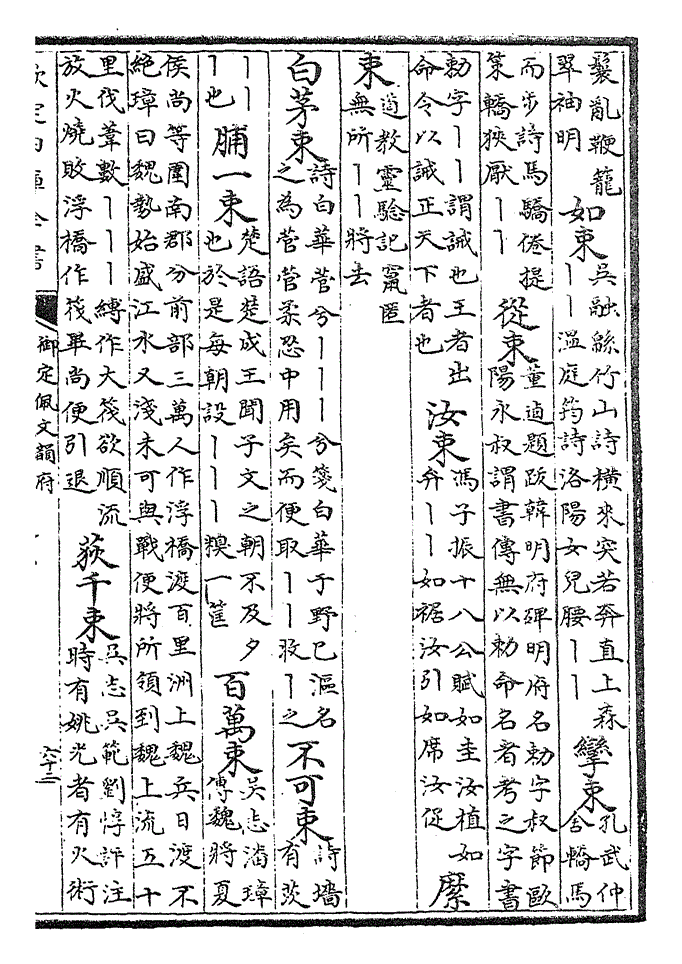 鬟亂鞭籠翠袖明 如束 吳融緜竹山詩橫來突若奔直上森丨丨溫庭筠詩洛陽女兒腰丨丨 攣束 孔武仲舍轎馬
而步詩馬驕倦提策轎狹厭丨丨 從束 董逌題跋韓明府碑明府名勑字叔節歐陽永叔謂書傳無以勑命名者考之字書
勑字丨丨謂誡也王者出命令以誡正天下者也 汝束 馮子振十八公賦如圭汝植如弁丨丨如裾汝引如席汝促 縻
束 道教靈驗記竄匿無所丨丨將去
白茅束 詩白華菅兮丨丨丨兮箋白華于野已漚名之為菅菅柔忍中用矣而便取丨丨收丨之 不可束 詩墻有茨
丨丨丨也 脯一束 楚語楚成王聞子文之朝不及夕也於是每朝設丨丨丨糗一筐 百萬束 吳志潘璋傳魏將夏
侯尚等圍南郡分前部三萬人作浮橋渡百里洲上魏兵日渡不絶璋曰魏勢始盛江水又淺未可與戰便將所領到魏上流五十
里伐葦數丨丨丨縛作大筏欲順流放火燒敗浮橋作筏畢尚便引退 荻千束 吳志吳範劉惇評注時有姚光者有火術
欽定四庫全書
御定佩文韻府
六十二